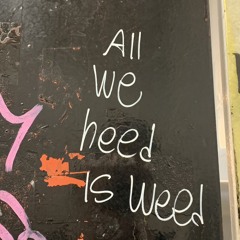 All
we
need
is weed